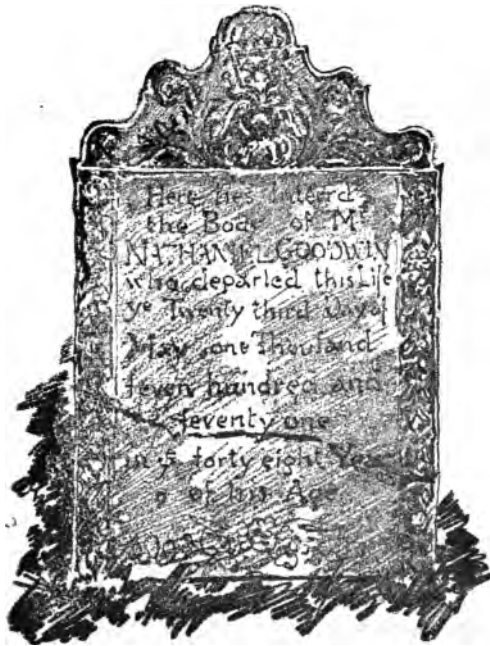 Here lies Interd
the Body of Mr
NATHANIEL GOODWIN
who departed this Life
ye Twenty third Day of
May one Thouſand
ſeven hundred and
ſeventy one
in ye forty eight Year
of his Age